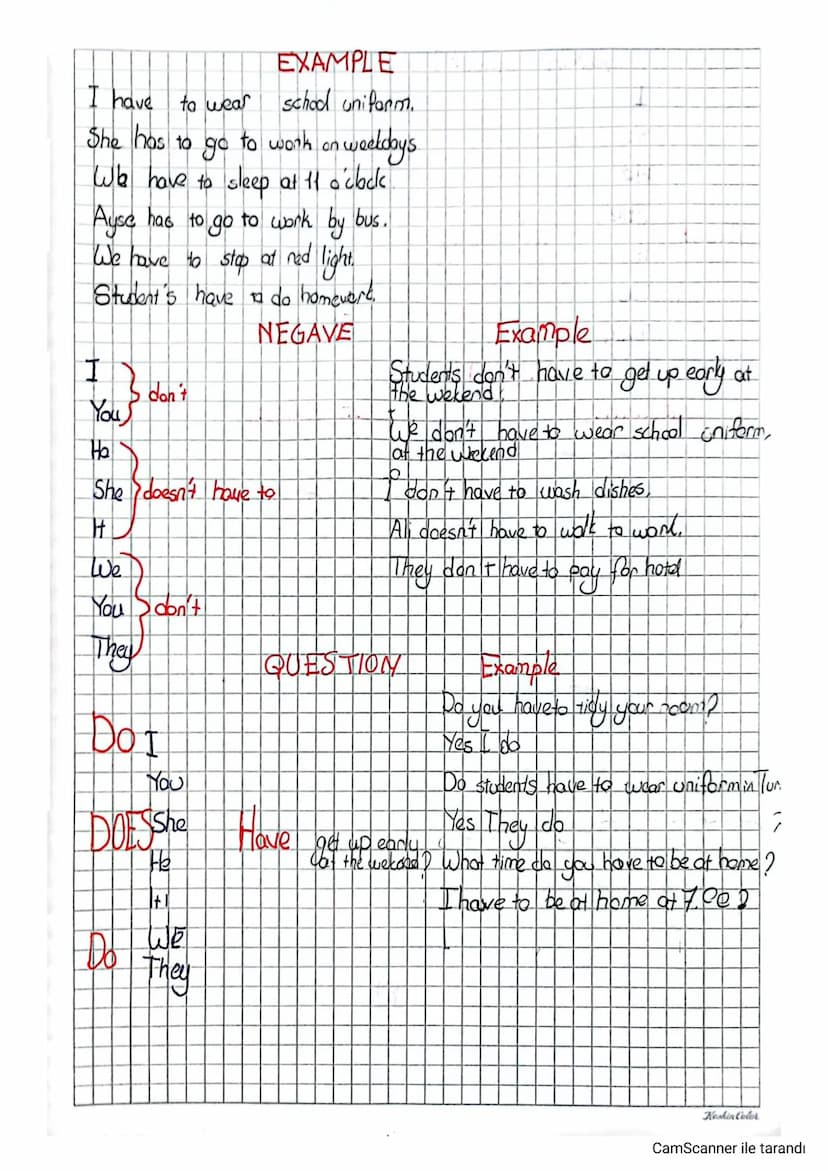 EXAMPLE
I have to wear school uniform.
She has to go to work on weekdays
We have to sleep at 11 o'clock
Ayse has to go to work by bus.
We have to stop at red light.
Student's have to do homevert.
NEGAVE Example
I
You
don't
Students don't have to get up early at
the wekend.
He
She
It
doesn't have to
We don't have to wear school uniform,
at the wekend
I don't have to wash dishes.
Ali doesn't have to walk to work.
We
You
They
don't
They don't have to pay for hotel
QUESTION Example
Do you have to tidy your room?
Do I
Yes I do
You
Do students have to wear uniform in Tur
DOES She
Have
Yes They do
He
get up early
at the wekend?
What time do you have to be at home?
It
I have to be at home at 7.00
Do WE
They
KeskinColor
CamScanner ile tarandı